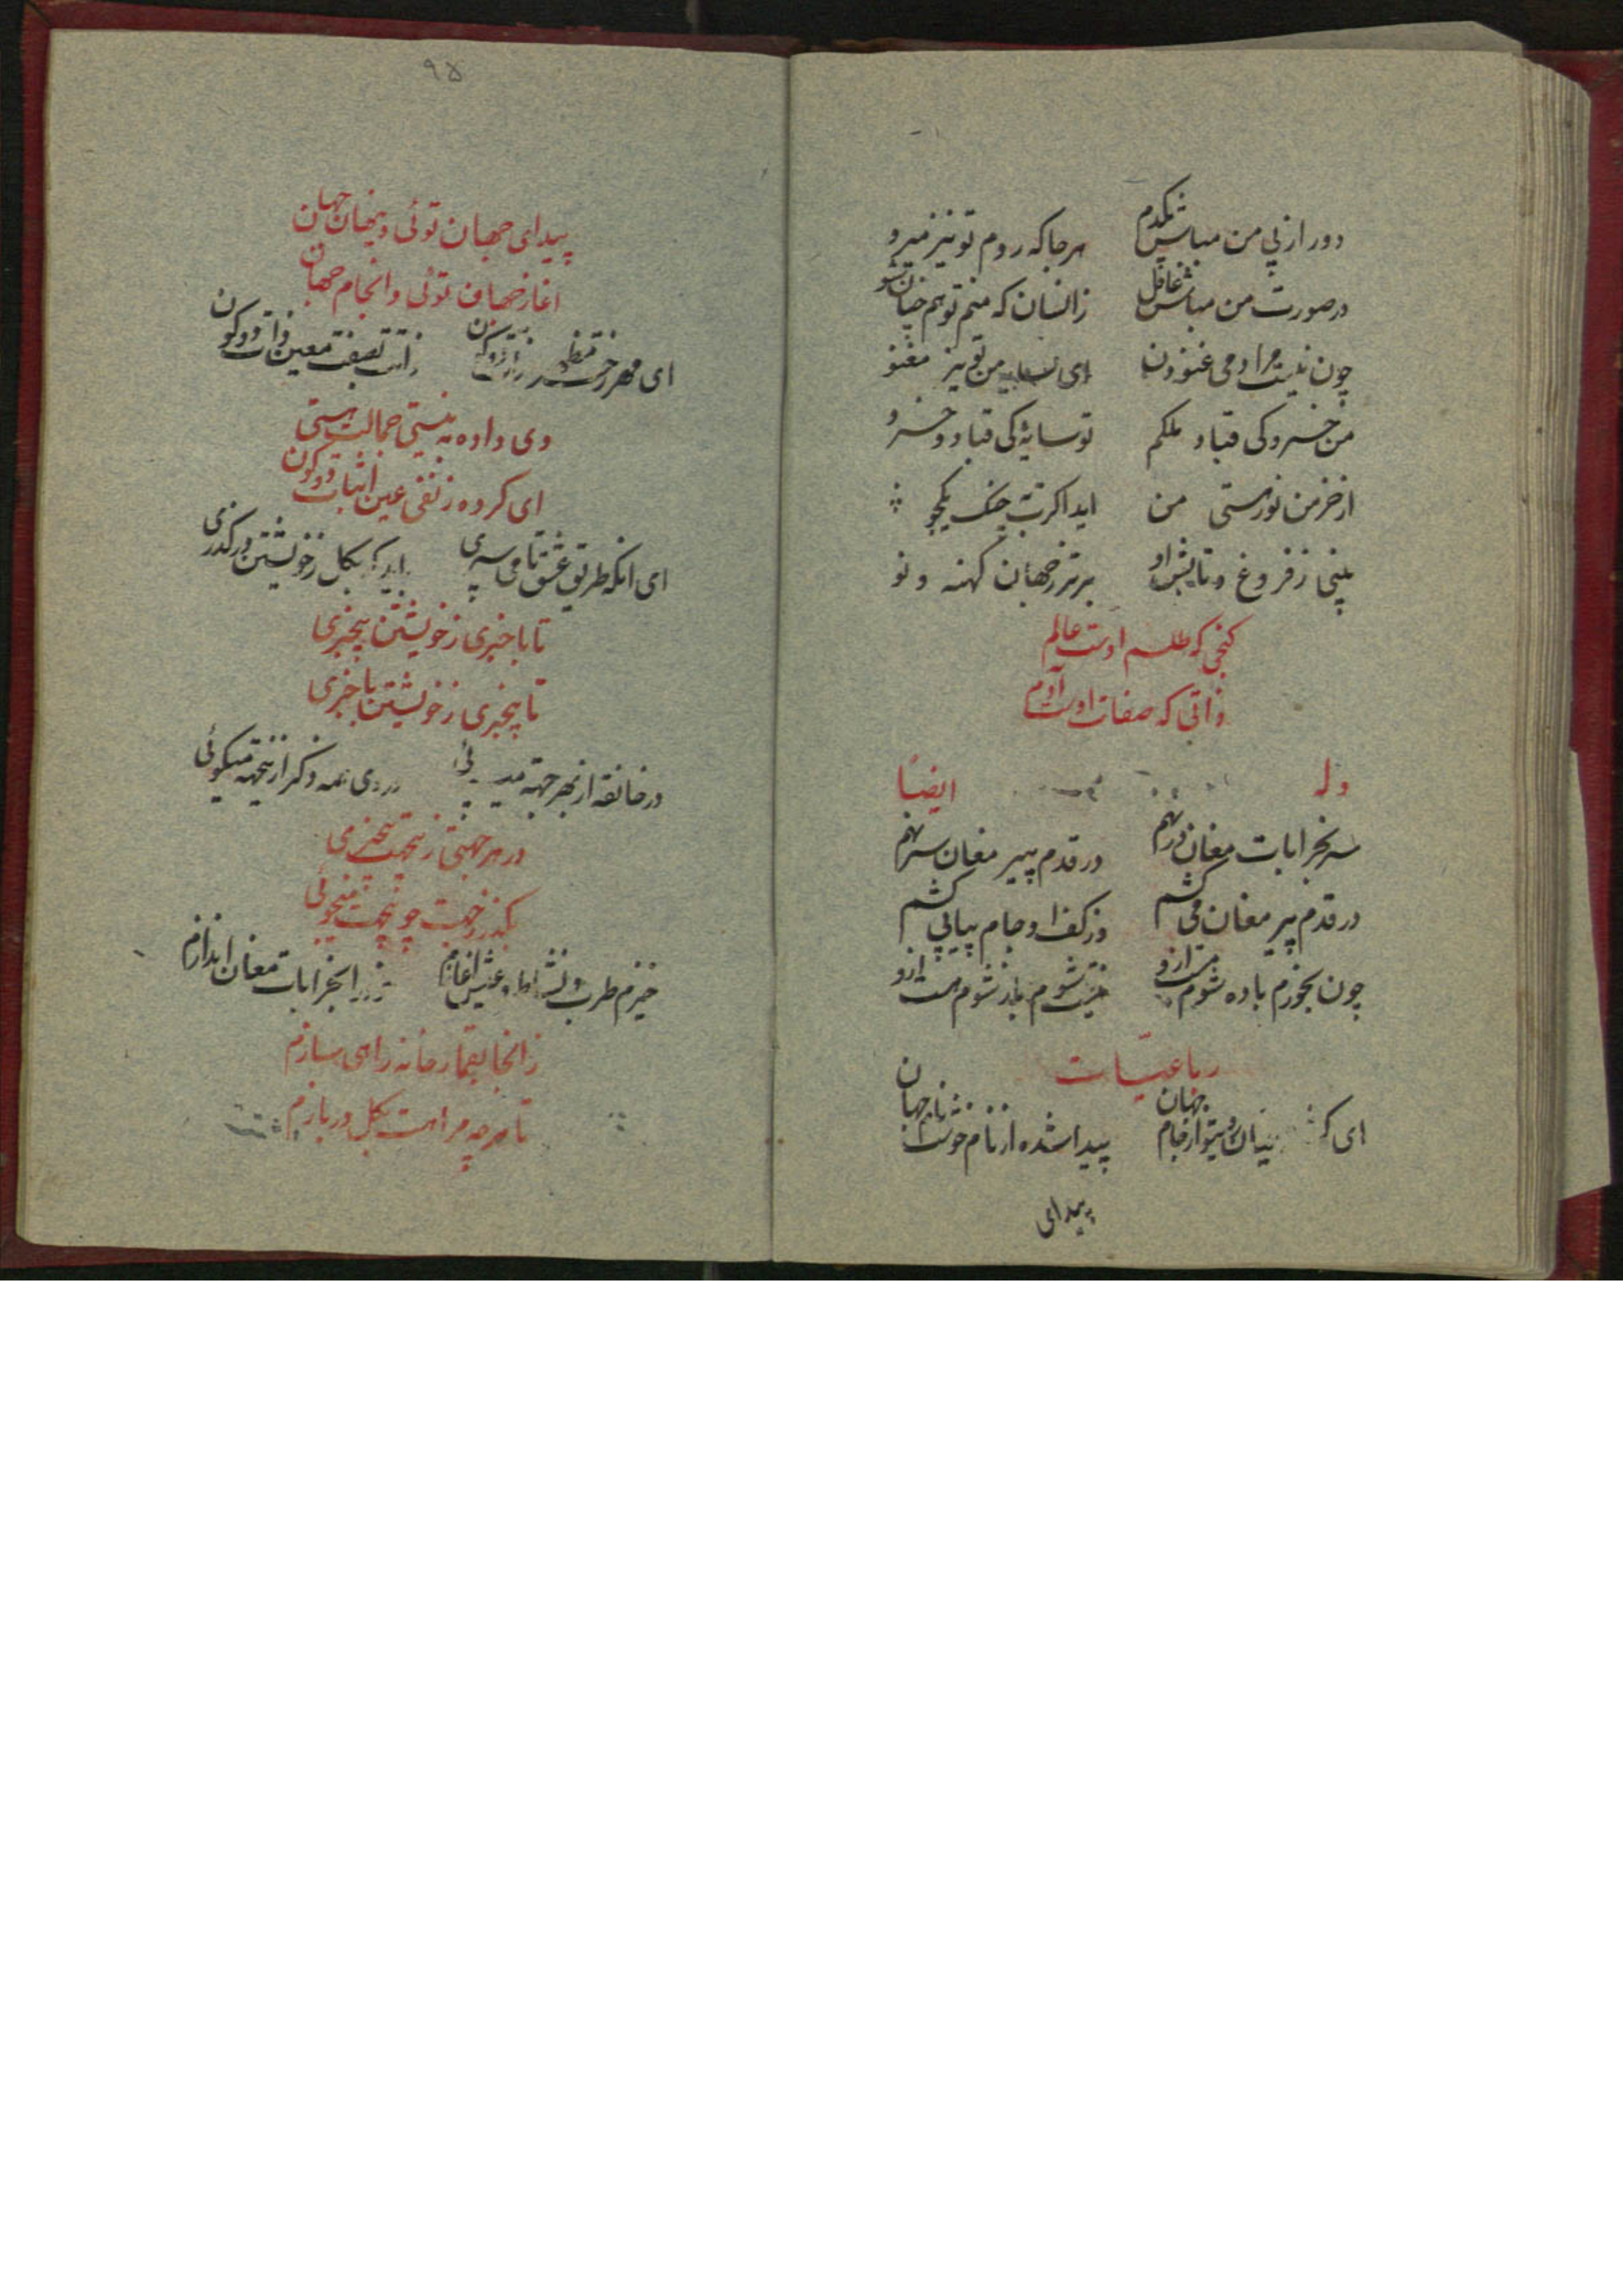 دور از پی من مباش یکدم هر جا که روم تو نیز میرو
در صورت من مباش غافل زانسان که منم تو هم چنان شو
چون نیست مرا دمی غنودن ای من تو نیز مغنو
من خسرو کی قباد ملکم تو سایهٔ کی قباد و خسرو
از خرمن نور هستی من اید اکرت بچنک یکجو
بینی ز فروغ و تابش او برتر ز جهان کهنه و نو
کنجی که طلسم اوست عالم
ذاتی که صفات اوست آدم
وله ایضاً
سر بخرابات مغان در نهم در قدم پیر مغان سر نهم
در قدم پیر مغان می کشم وز کف او جام پیاپی کشم
چون بخورم باده شوم مست ازو نیست شوم باز شوم هست ازو
رباعیات
ای جهان پیدا شده از نام خوشت نام جهان
پیدای
۹۵
پیدای جهان توئی و پنهان جهان
اغاز جهان توئی و انجام جهان
ای مهر رخت ذات دو کون
وی داده به نیستی جمالت هستی
ای کرده ز نفی عین اثبات دو کون
ای انکه طریق عشق ما می سپری باید که بکل ز خویشتن در کذری
تا با خبری ز خویشتن بیخبری
تا بیخبری ز خویشتن با خبری
در خانقه از بهر جهة
در هر جهتی ز بیجهت بیخبری
بکذر ز جهت چو بیجهت میجوئی
خیزم طرب و نشاط و عیش اغازم خود را بخرابات مغان اندازم
زانجا بقمار خانه راهی سازم
تا هر چه مرا هست بکل در بازم